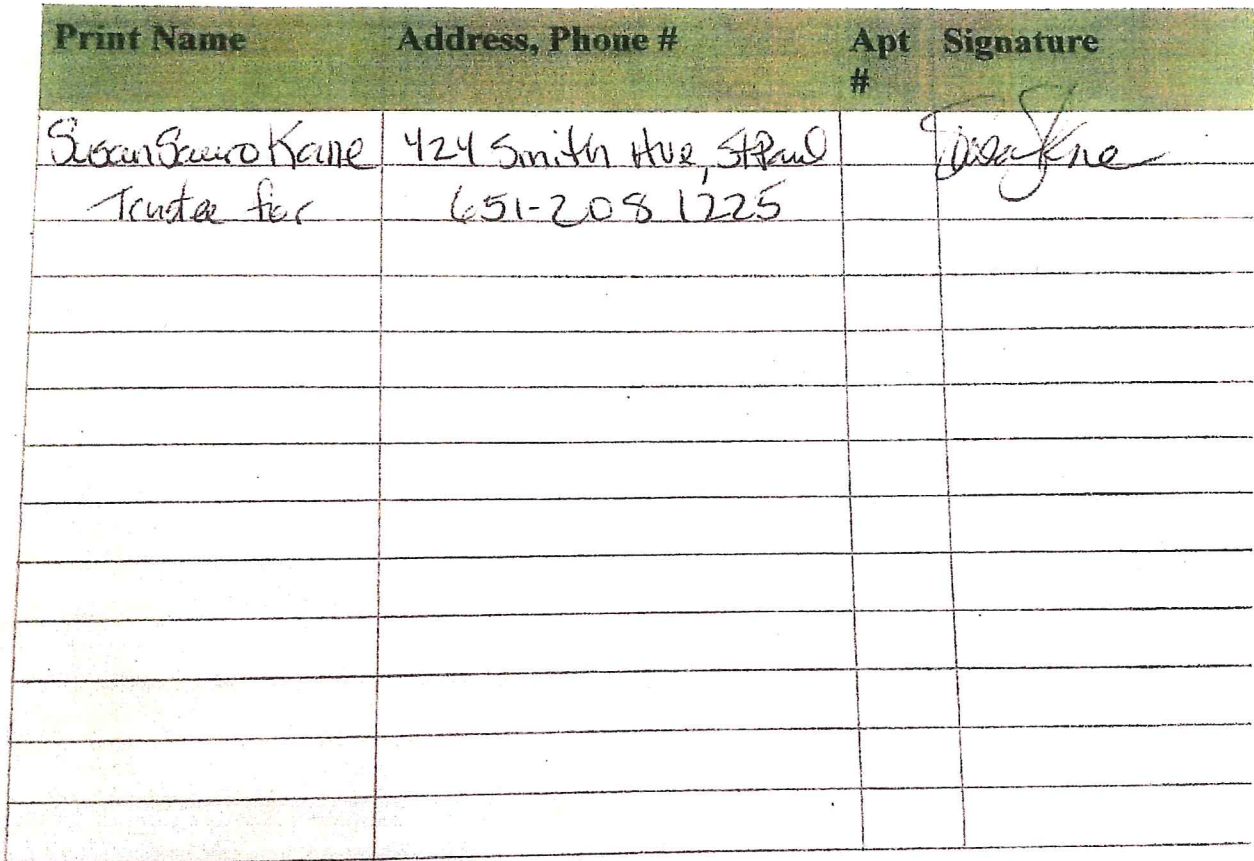 Print Name Address, Phone # Apt # Signature
Susan Sauro Kane 424 Smith Ave, St Paul
Trustee for 651-208 1225